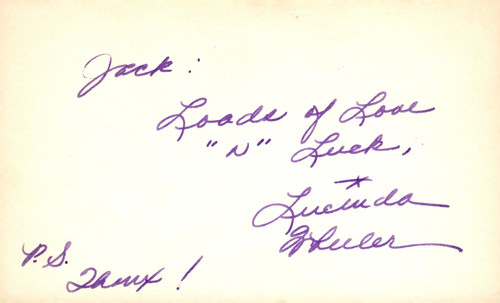 Jack:
Loads of Love
"N" Luck,
Lucinda
Wheeler
P.S.
Tanx!